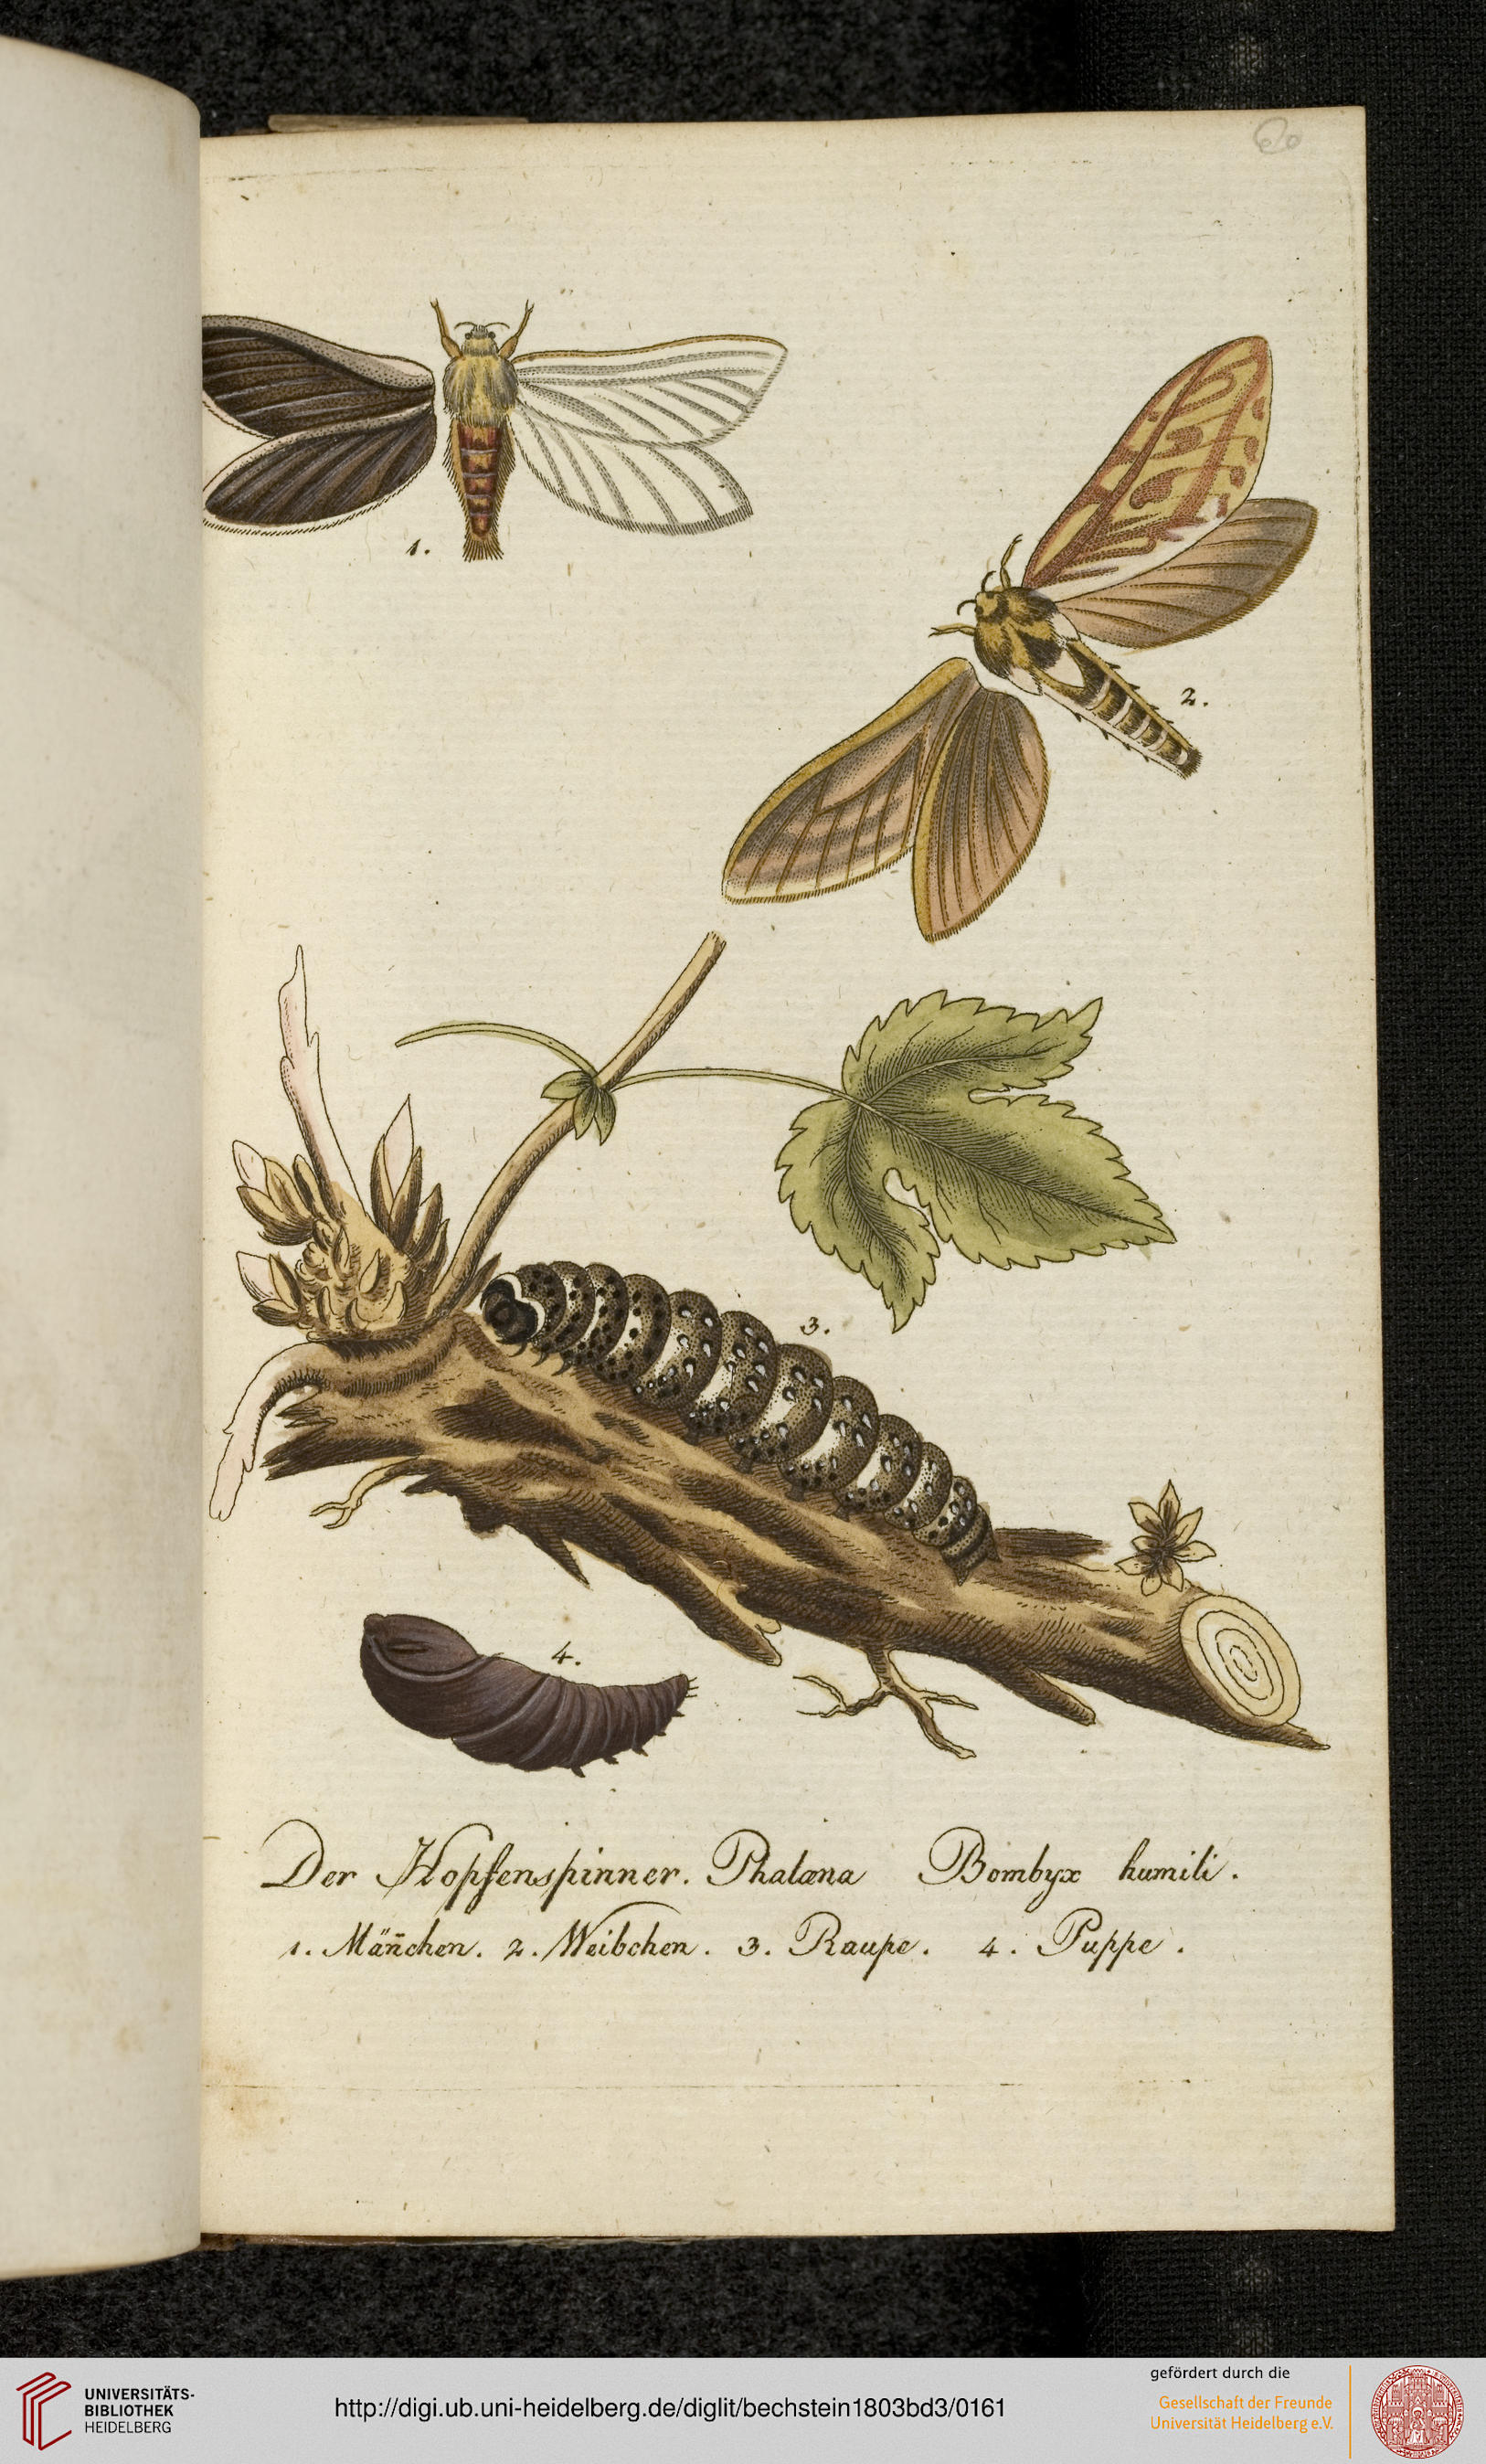 60
1.
2.
3.
4.
Der Hopfenspinner. Phalæna Bombyx humili.
1. Mäñchen. 2. Weibchen. 3. Raupe. 4. Puppe.
UNIVERSITÄTS-
BIBLIOTHEK
HEIDELBERG
http://digi.ub.uni-heidelberg.de/diglit/bechstein1803bd3/0161
gefördert durch die
Gesellschaft der Freunde
Universität Heidelberg e.V.